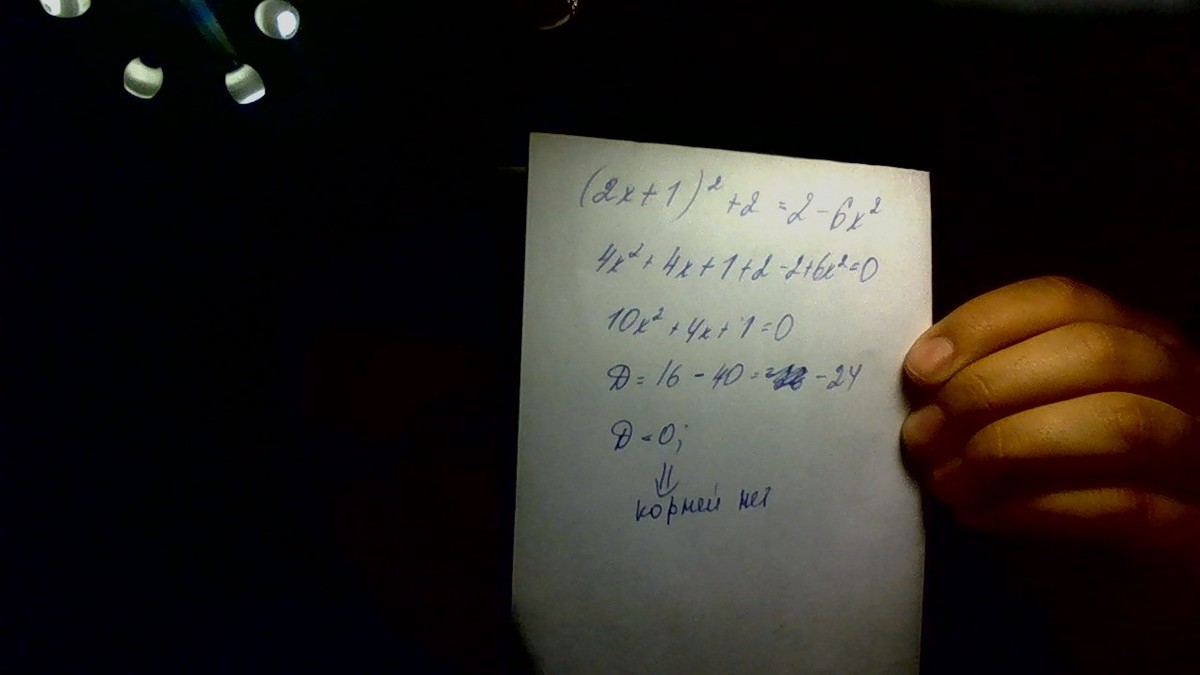 (2x+1)² +2 = 2 - 6x²
4x² + 4x + 1 + 2 - 2 + 6x² = 0
10x² + 4x + 1 = 0
D = 16 - 40 = -24
D < 0;
⇓
корней нет